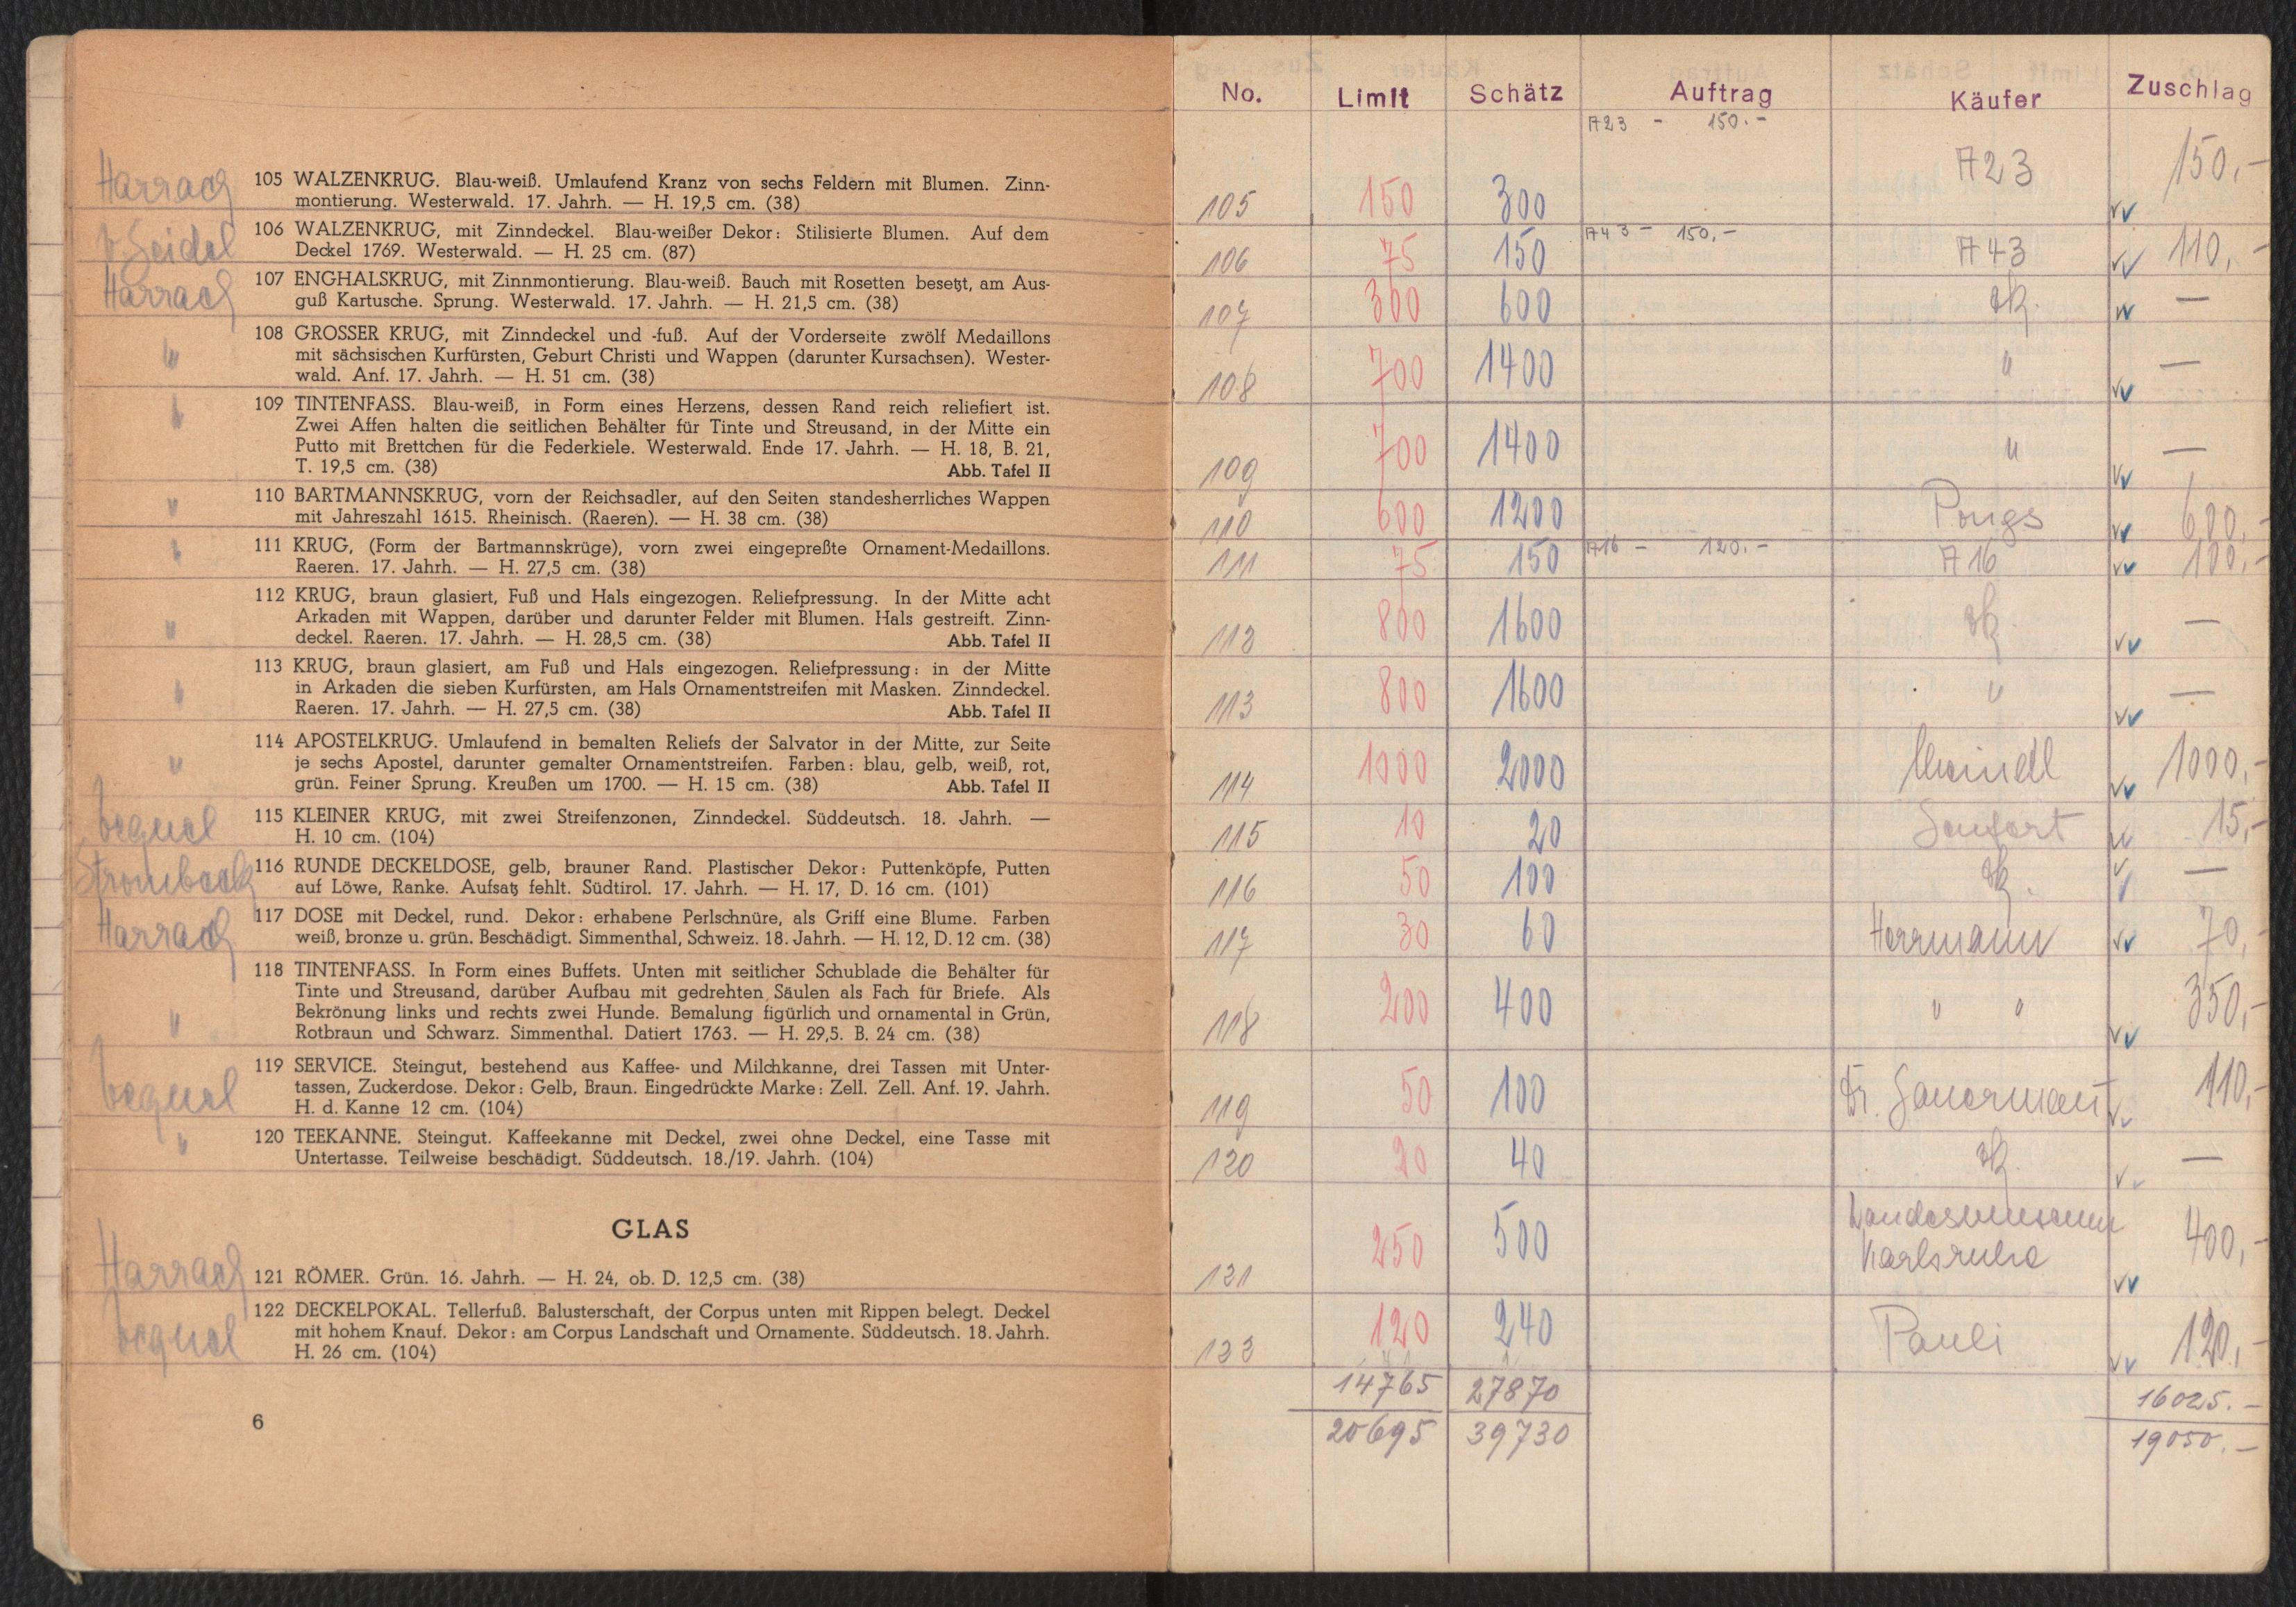 Harrach
105 WALZENKRUG. Blau-weiß. Umlaufend Kranz von sechs Feldern mit Blumen. Zinn-
montierung. Westerwald. 17. Jahrh. — H. 19,5 cm. (38)
v. Seidel
106 WALZENKRUG, mit Zinndeckel. Blau-weißer Dekor: Stilisierte Blumen. Auf dem
Deckel 1769. Westerwald. — H. 25 cm. (87)
Harrach
107 ENGHALSKRUG, mit Zinnmontierung. Blau-weiß. Bauch mit Rosetten besetzt, am Aus-
guß Kartusche. Sprung. Westerwald. 17. Jahrh. — H. 21,5 cm. (38)
"
108 GROSSER KRUG, mit Zinndeckel und -fuß. Auf der Vorderseite zwölf Medaillons
mit sächsischen Kurfürsten, Geburt Christi und Wappen (darunter Kursachsen). Wester-
wald. Anf. 17. Jahrh. — H. 51 cm. (38)
"
109 TINTENFASS. Blau-weiß, in Form eines Herzens, dessen Rand reich reliefiert ist.
Zwei Affen halten die seitlichen Behälter für Tinte und Streusand, in der Mitte ein
Putto mit Brettchen für die Federkiele. Westerwald. Ende 17. Jahrh. — H. 18, B. 21,
T. 19,5 cm. (38) Abb. Tafel II
"
110 BARTMANNSKRUG, vorn der Reichsadler, auf den Seiten standesherrliches Wappen
mit Jahreszahl 1615. Rheinisch. (Raeren). — H. 38 cm. (38)
"
111 KRUG, (Form der Bartmannskrüge), vorn zwei eingepreßte Ornament-Medaillons.
Raeren. 17. Jahrh. — H. 27,5 cm. (38)
"
112 KRUG, braun glasiert, Fuß und Hals eingezogen. Reliefpressung. In der Mitte acht
Arkaden mit Wappen, darüber und darunter Felder mit Blumen. Hals gestreift. Zinn-
deckel. Raeren. 17. Jahrh. — H. 28,5 cm. (38) Abb. Tafel II
"
113 KRUG, braun glasiert, am Fuß und Hals eingezogen. Reliefpressung: in der Mitte
in Arkaden die sieben Kurfürsten, am Hals Ornamentstreifen mit Masken. Zinndeckel.
Raeren. 17. Jahrh. — H. 27,5 cm. (38) Abb. Tafel II
"
114 APOSTELKRUG. Umlaufend in bemalten Reliefs der Salvator in der Mitte, zur Seite
je sechs Apostel, darunter gemalter Ornamentstreifen. Farben: blau, gelb, weiß, rot,
grün. Feiner Sprung. Kreußen um 1700. — H. 15 cm. (38) Abb. Tafel II
115 KLEINER KRUG, mit zwei Streifenzonen, Zinndeckel. Süddeutsch. 18. Jahrh. —
H. 10 cm. (104)
Strombeck
116 RUNDE DECKELDOSE, gelb, brauner Rand. Plastischer Dekor: Puttenköpfe, Putten
auf Löwe, Ranke. Aufsatz fehlt. Südtirol. 17. Jahrh. — H. 17, D. 16 cm. (101)
Harrach
117 DOSE mit Deckel, rund. Dekor: erhabene Perlschnüre, als Griff eine Blume. Farben
weiß, bronze u. grün. Beschädigt. Simmenthal, Schweiz. 18. Jahrh. — H. 12, D. 12 cm. (38)
"
118 TINTENFASS. In Form eines Buffets. Unten mit seitlicher Schublade die Behälter für
Tinte und Streusand, darüber Aufbau mit gedrehten Säulen als Fach für Briefe. Als
Bekrönung links und rechts zwei Hunde. Bemalung figürlich und ornamental in Grün,
Rotbraun und Schwarz. Simmenthal. Datiert 1763. — H. 29,5. B. 24 cm. (38)
119 SERVICE. Steingut, bestehend aus Kaffee- und Milchkanne, drei Tassen mit Unter-
tassen, Zuckerdose. Dekor: Gelb, Braun. Eingedrückte Marke: Zell. Zell. Anf. 19. Jahrh.
H. d. Kanne 12 cm. (104)
"
120 TEEKANNE. Steingut. Kaffeekanne mit Deckel, zwei ohne Deckel, eine Tasse mit
Untertasse. Teilweise beschädigt. Süddeutsch. 18./19. Jahrh. (104)
GLAS
Harrach
121 RÖMER. Grün. 16. Jahrh. — H. 24, ob. D. 12,5 cm. (38)
122 DECKELPOKAL. Tellerfuß. Balusterschaft, der Corpus unten mit Rippen belegt. Deckel
mit hohem Knauf. Dekor: am Corpus Landschaft und Ornamente. Süddeutsch. 18. Jahrh.
H. 26 cm. (104)
6
No. Limit Schätz Auftrag Käufer Zuschlag
105 150 300 A23 - 150.- A23 150,-
106 75 150 A43 - 150,- A43 110,-
107 300 600 —
108 700 1400 " —
109 700 1400 " —
110 600 1200 Pongs 600,-
111 75 150 A16 - 120.- A16 100,-
112 800 1600 —
113 800 1600 " —
114 1000 2000 1000,-
115 10 20 15,-
116 50 100 —
117 30 60 Herrmann 70,-
118 200 400 " " 350,-
119 50 100 Dr. 110,-
120 20 40 —
121 250 500 Landesmuseum Karlsruhe 400,-
122 120 240 Pauli 120,-
14765 27870 16025.-
20695 39730 19050.-